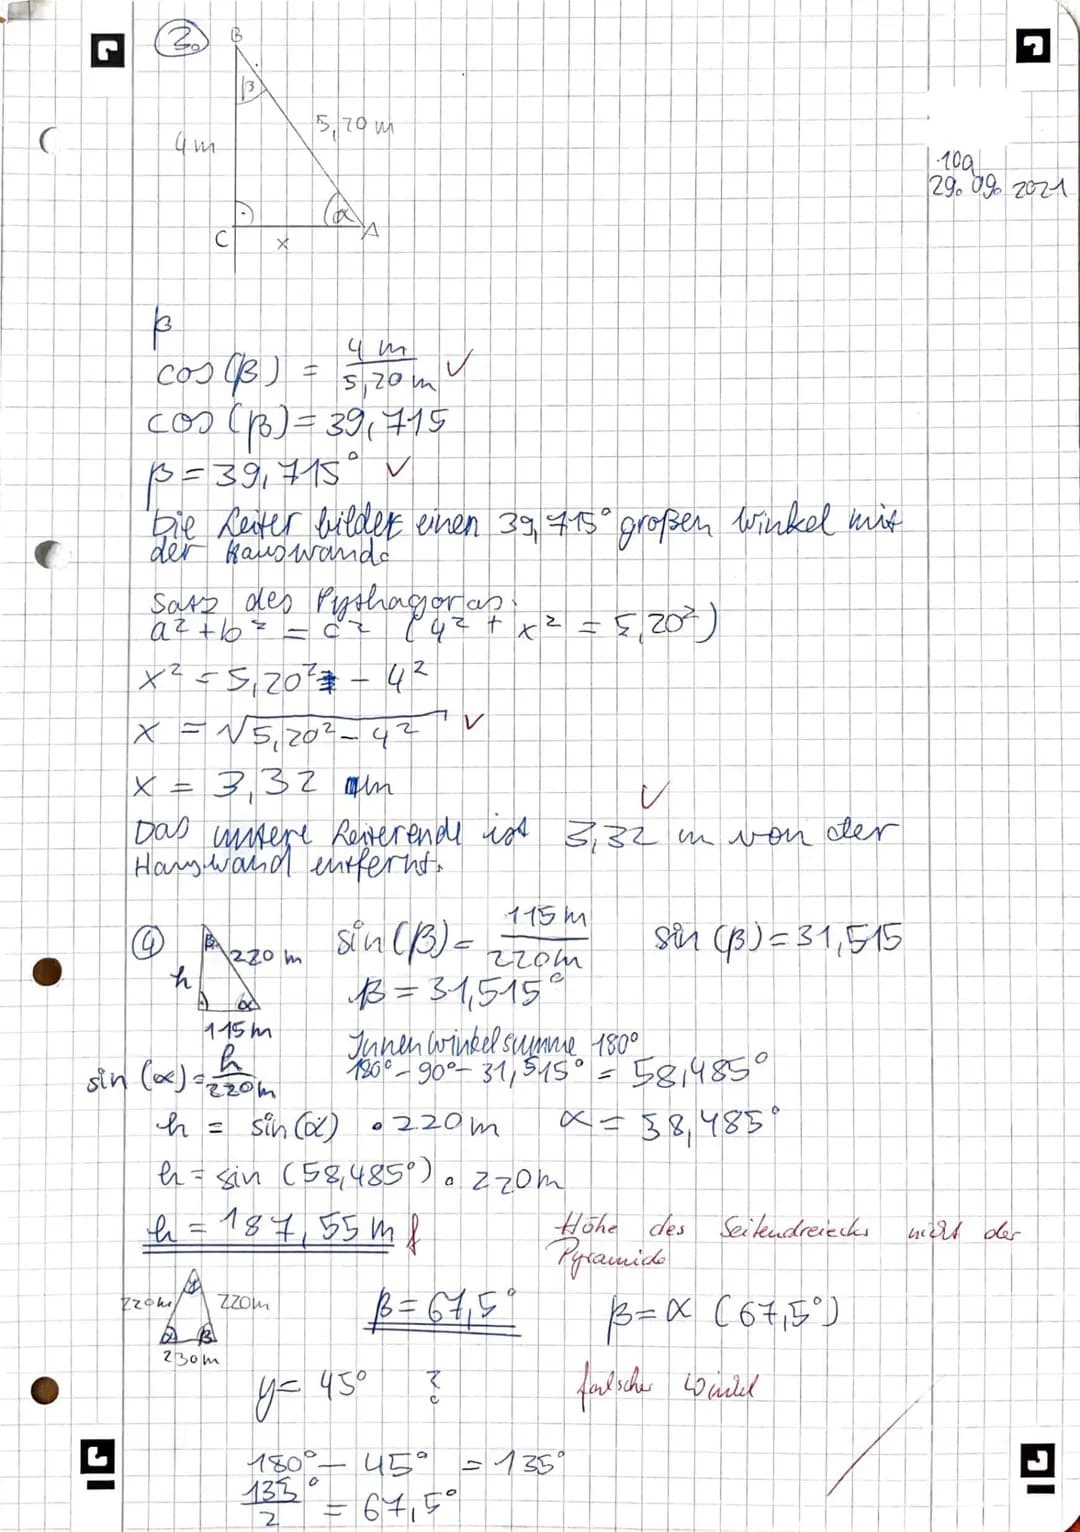 2.
B
β
4m
5,20 m
α
C
x
A
10a
29.09.2021
β
cos(β) = 4 m / 5,20 m ✓
cos(β) = 39,715
β = 39,715° ✓
Die Leiter bildet einen 39,715° großen Winkel mit
der Hauswand.
Satz des Pythagoras:
a² + b² = c² (4² + x² = 5,20²)
x² = 5,20² - 4²
x = √5,20² - 4² ✓
x = 3,32 m
✓
Das untere Leiterende ist 3,32 m von der
Hauswand entfernt.
4
β
220 m
h
α
115m
sin(β) = 115m / 220m
sin(β) = 31,515
β = 31,515°
Innenwinkelsumme 180°
180° - 90° - 31,515° = 58,485°
sin(α) = h / 220m
h = sin(α) • 220m
α = 58,485°
h = sin (58,485°) • 220m
h = 187,55m f
Höhe des Seitendreiecks nicht der
Pyramide
220m
220m
α
β
230m
β = 67,5°
β = α (67,5°)
y = 45° ?
falscher Winkel
180° - 45° = 135°
135° / 2 = 67,5°